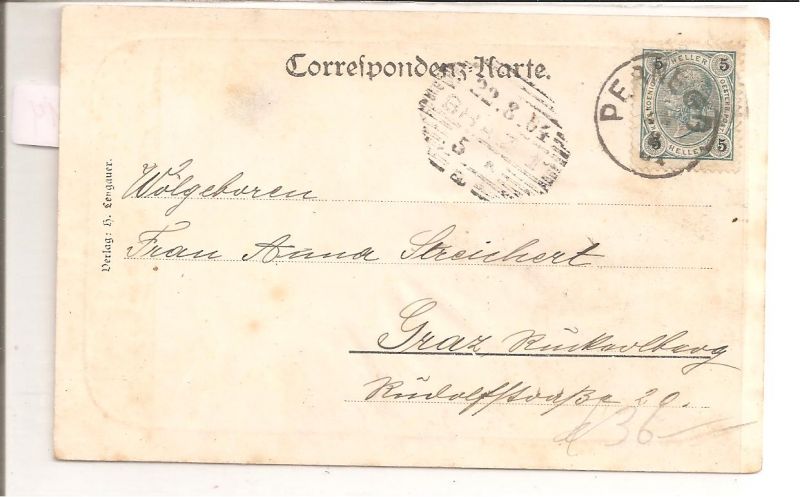 Correspondenz-Karte.
5 HELLER 5
5 HELLER 5
PERNEGG
22.8.04
GRAZ
5
Wolgeboren
Frau Anna Streichert
Graz Ruckerlberg
Rudolfstraße 20.
Verlag: H. Lengauer.
36